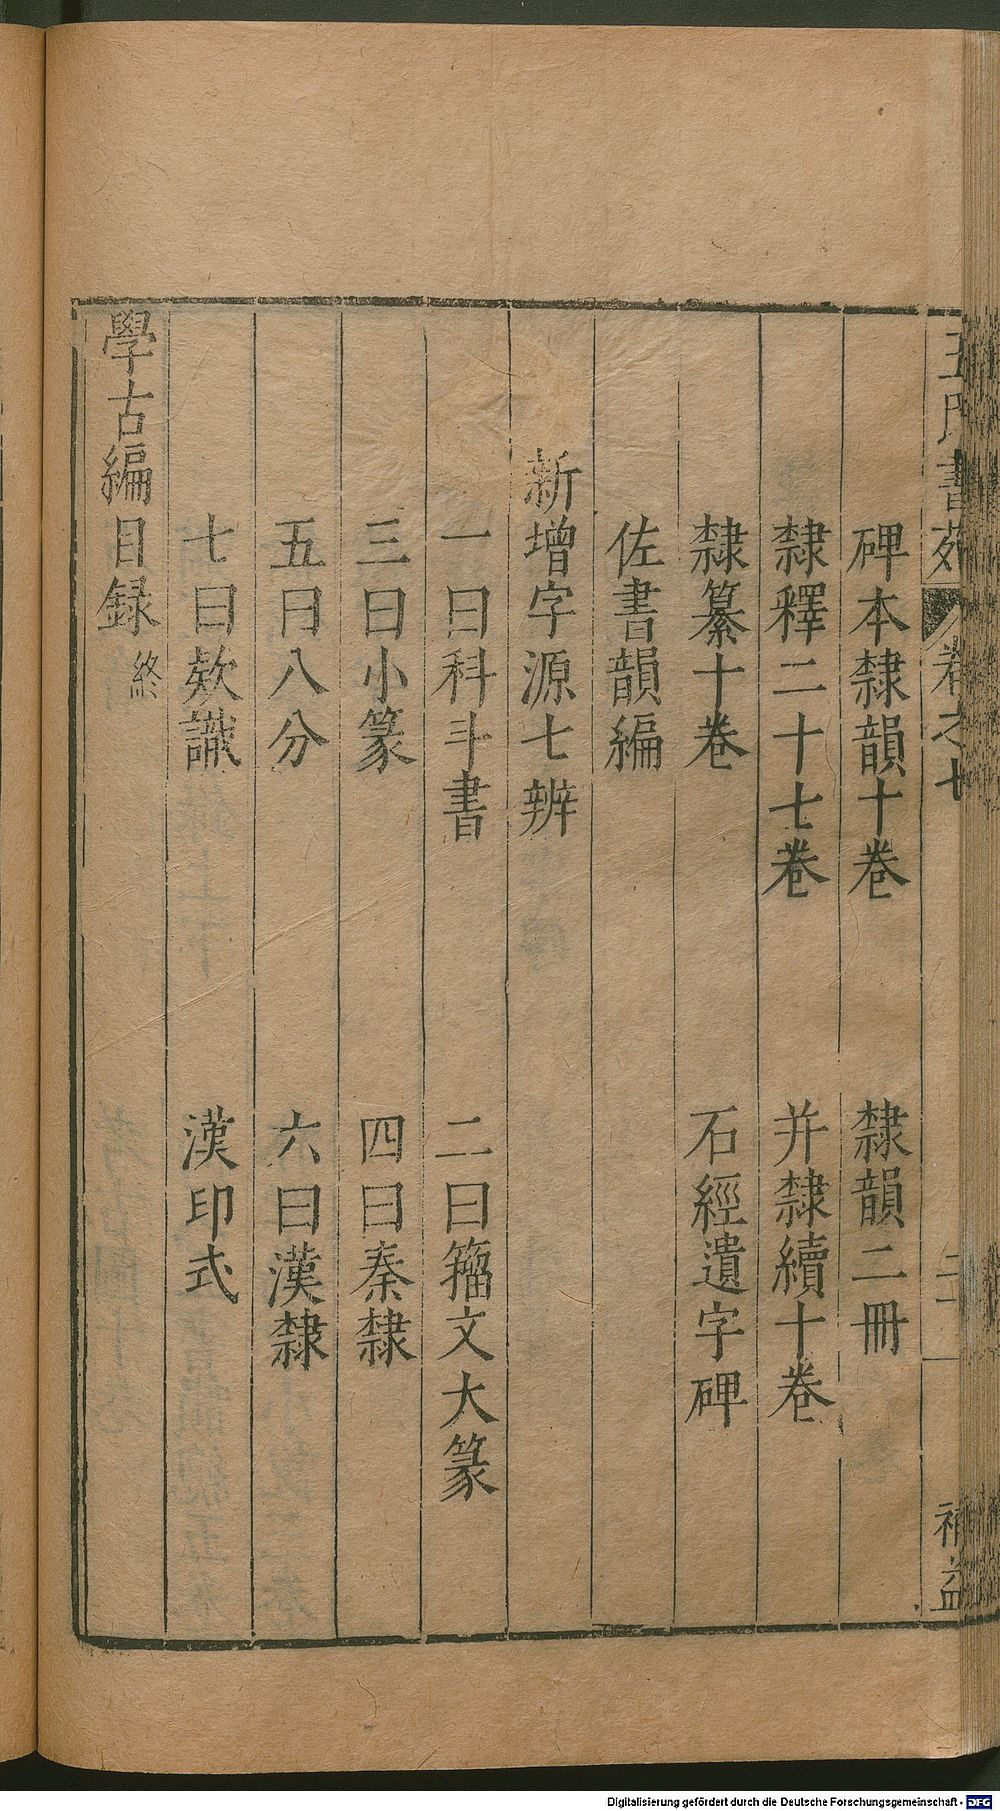 王氏書苑 卷之七 補益
碑本隸韻十卷 隸韻二冊
隸釋二十七卷 并隸續十卷
隸纂十卷 石經遺字碑
佐書韻編
新增字源七辨
一曰科斗書 二曰籀文大篆
三曰小篆 四曰秦隸
五曰八分 六曰漢隸
七曰欵識 漢印式
學古編目録終
Digitalisierung gefördert durch die Deutsche Forschungsgemeinschaft - DFG